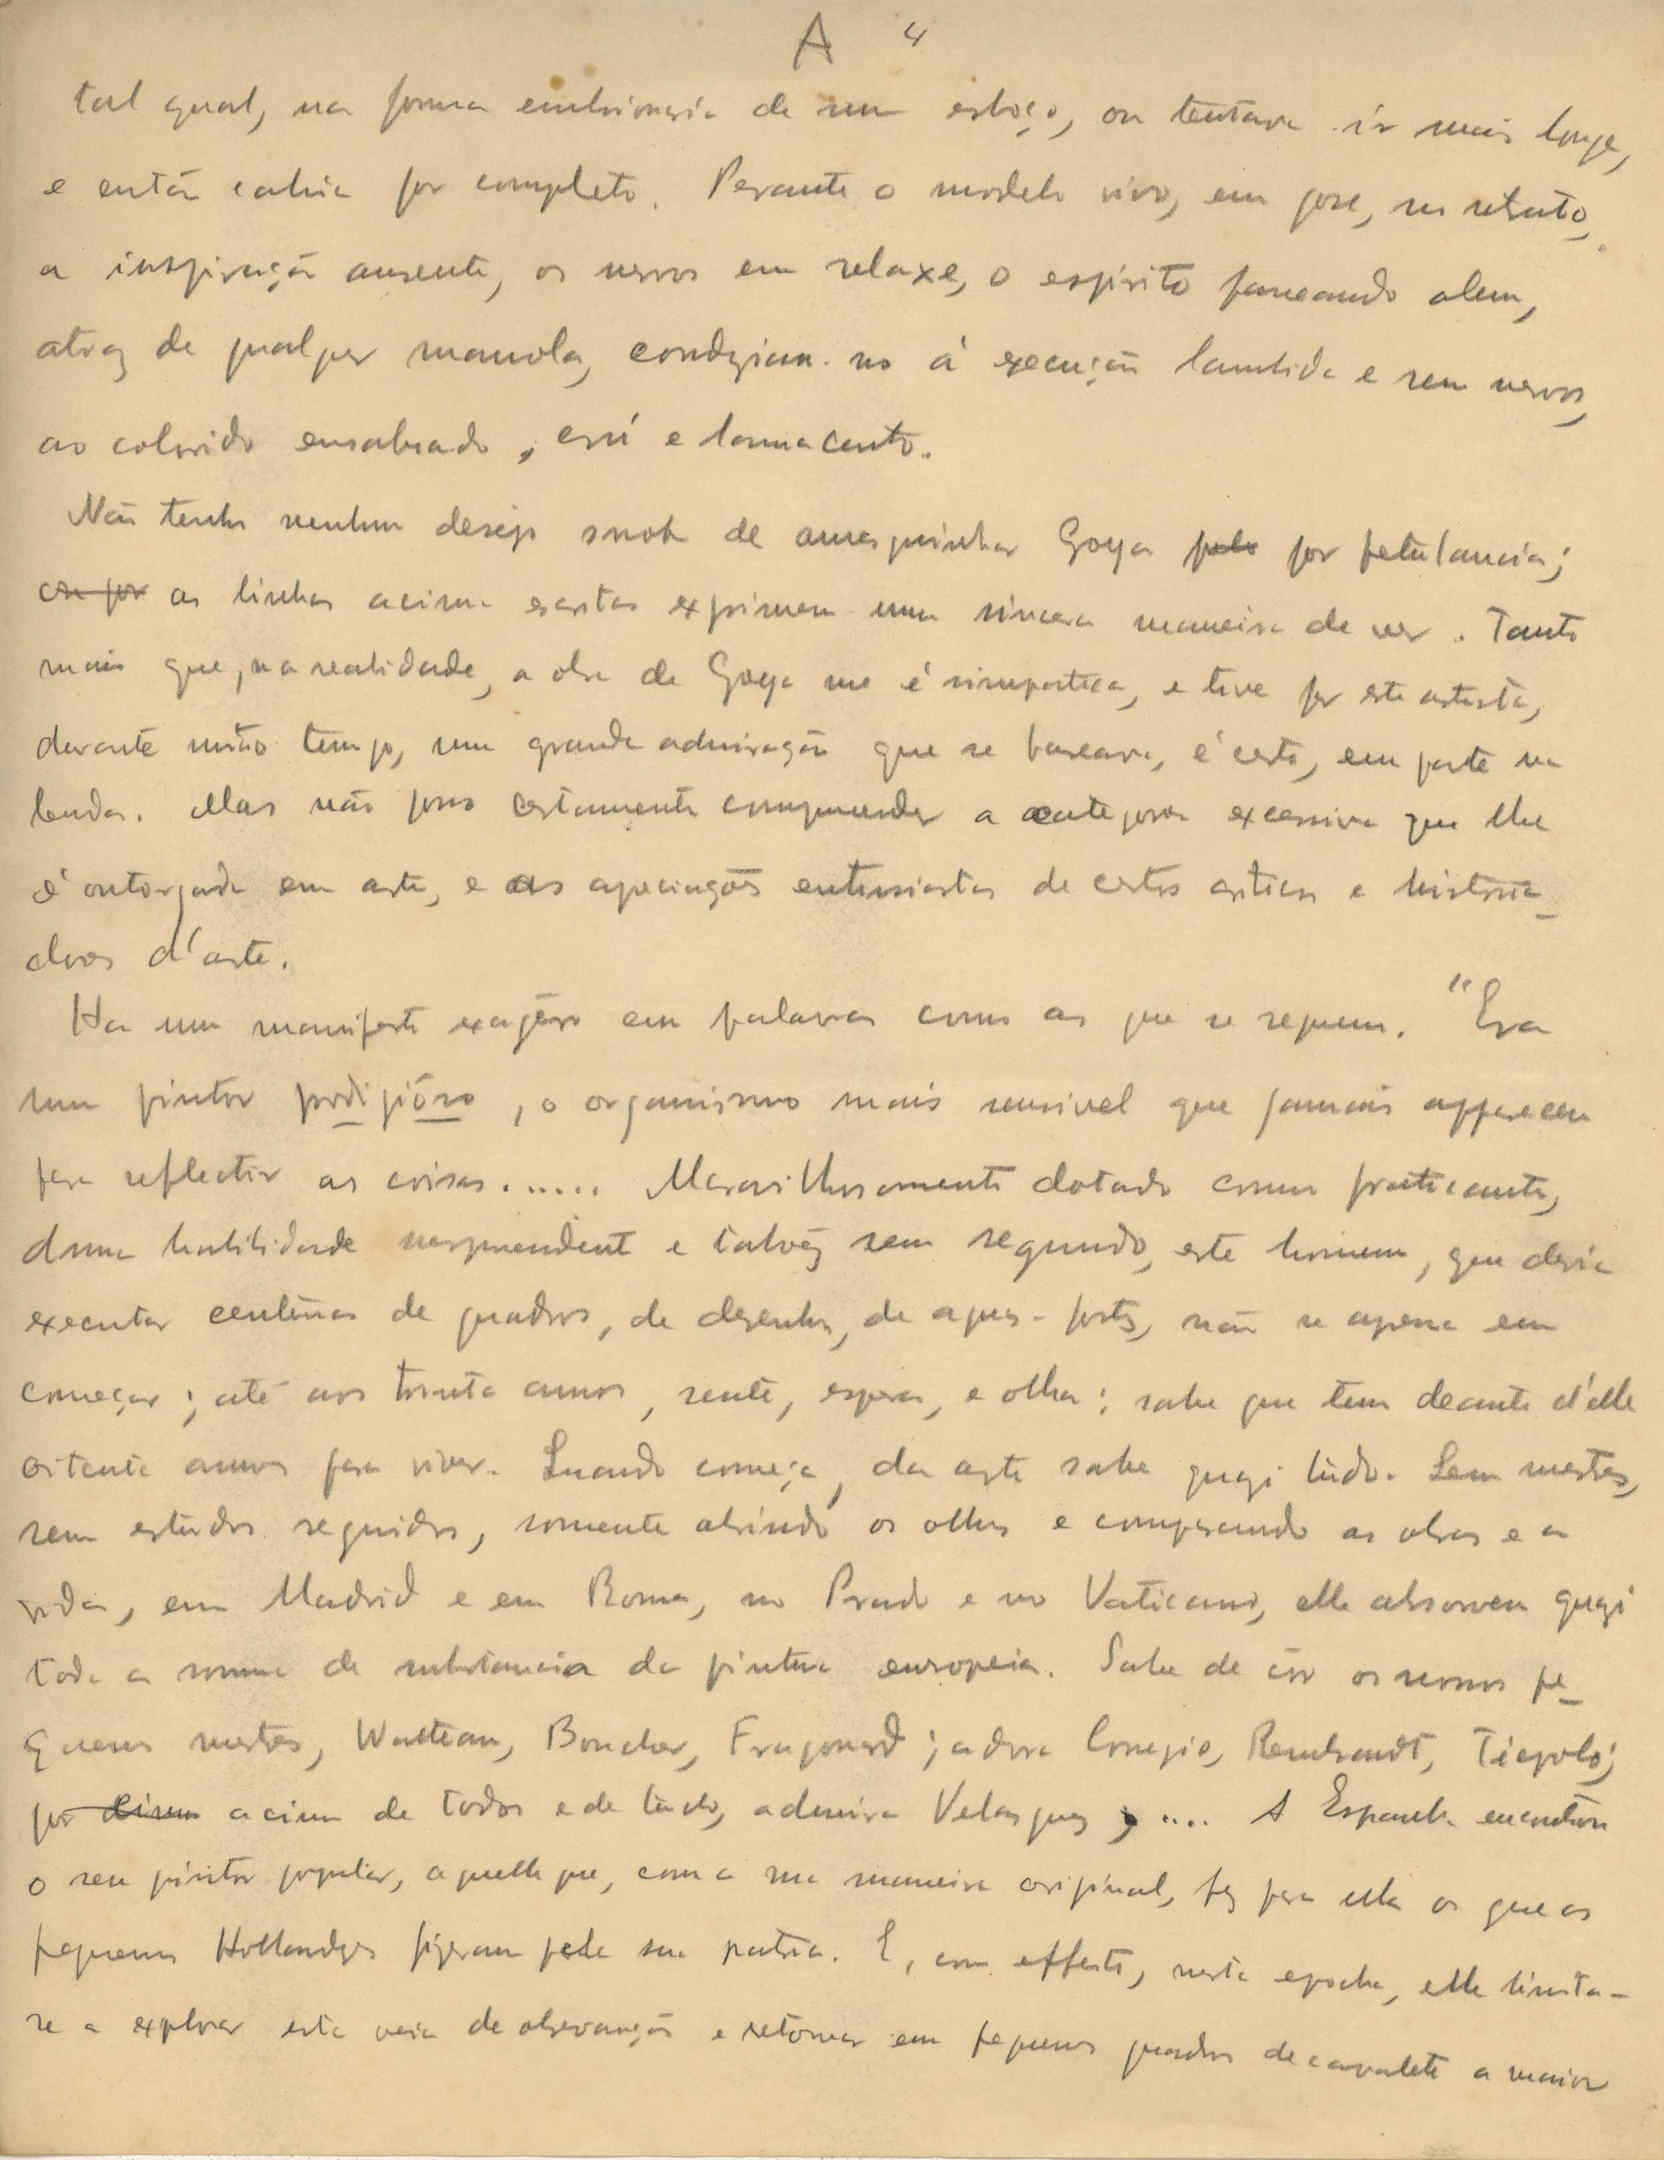 A 4
tal qual, na forma embrionaria de um esboço, ou tentava ir mais longe,
e então cahia por completo. Perante o modelo vivo, em pose, no retrato,
a inspiração ausente, os nervos em relaxe, o espírito passeando alem,
atraz de qualquer manola, conduziam-no á execução lambida e sem nervos,
ao colorido ensaboado, crú e lamacento.
Não tenho nenhum desejo snob de amesquinhar Goya pelo por petulancia;
ou por as linhas acima escritas exprimem uma sincera maneira de ver. Tanto
mais que, na realidade, a obra de Goya me é simpatica, e tive por este artista,
durante muito tempo, uma grande admiração que se baseava, é certo, em parte na
lenda. Mas não posso certamente comprehender a categoria excessiva que lhe
é outorgada em arte, e as apreciações enthusiastas de certos criticos e historia-
dores d'arte.
Ha um manifesto exagêro em palavras como as que se seguem. "Era
um pintor prodigióso, o organismo mais sensivel que jamais appareceu
para reflectir as coisas...... Maravilhosamente dotado como praticante,
duma habilidade surprehendente e talvêz sem segundo, este homem, que devia
executar centenas de quadros, de desenhos, de aguas-fortes, não se apressa em
começar; até aos trinta annos, sente, espera, e olha; sabe que tem deante d'elle
oitenta annos para viver. Quando começa, da arte sabe quazi túdo. Sem mestres,
sem estudos seguidos, somente abrindo os olhos e comparando as obras e a
vida, em Madrid e em Roma, no Prado e no Vaticano, elle absorveu quazi
toda a somma de substancia da pintura europeia. Sabe de cór os nossos pe-
quenos mestres, Watteau, Boucher, Fragonard; adora Corregio, Rembrandt, Tiepolo;
por cima acima de todos e de túdo, admira Velasquez, .... A Espanha encontrou
o seu pintor popular, aquelle que, com a sua maneira original, fez para ella os que os
pequenos Hollandezes fizeram pela sua patria. E, com effeito, nesta epocha, elle limita-
se a explorar esta veia de observação e retomar em pequenos quadros de cavalete a maior